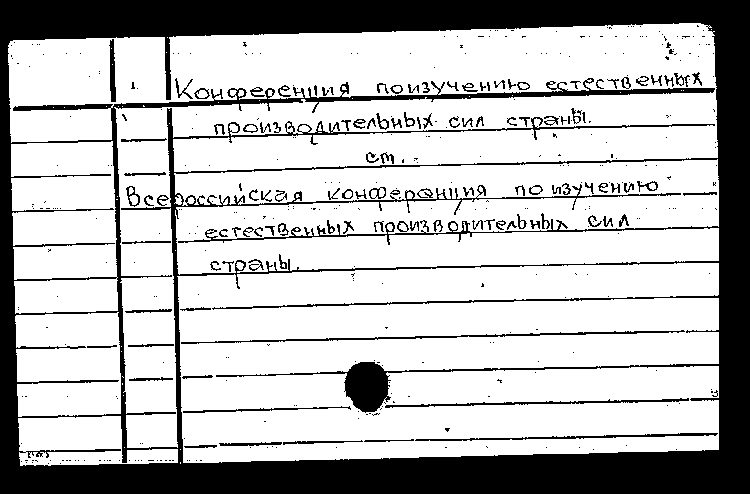 Конференция по изучению естественных
производительных сил страны.
ст.
Всероссийская конференция по изучению
естественных производительных сил
страны.